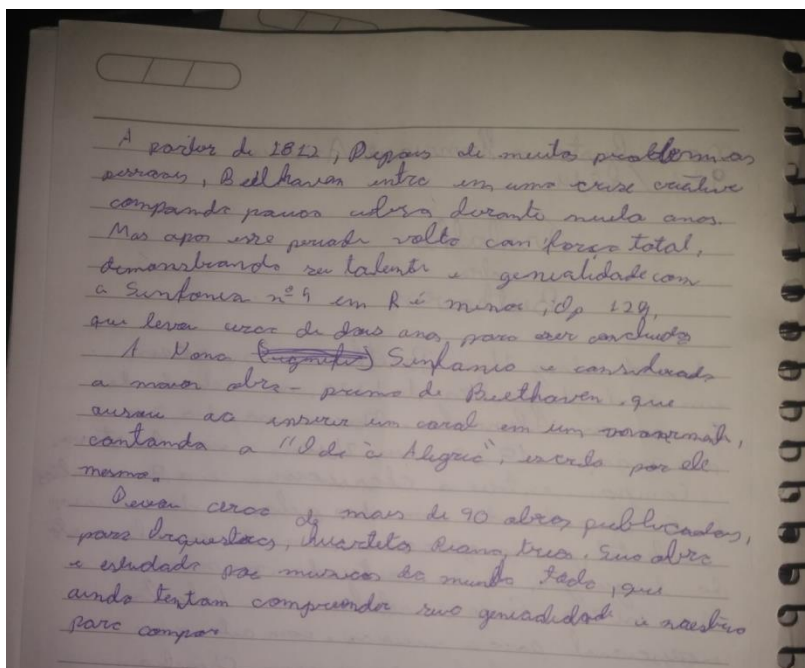 A partir de 1812, Depois de muitos problemas
pessoais, Beethoven entra em uma crise criativa
compondo poucas durante anos.
Mas apos esse periodo volta com força total,
demonstrando seu talento e genialidade com
a Sinfonia nº 9 em Ré menor, Op 129,
que levou cerca de dois anos para ser concluida
A Nona Sinfonia e considerada
a maior obra-prima de Beethoven, que
ousou ao inserir um coral em um
cantando a "Ode à Alegria", escrito por ele
mesmo.
Deixou cerca de mais de 90 obras publicadas,
para Orquestras, Quartetos Piano, trios. Sua obra
e estudada por musicos do mundo todo, que
ainda tentam compreender sua genialidade e maestria
para compor